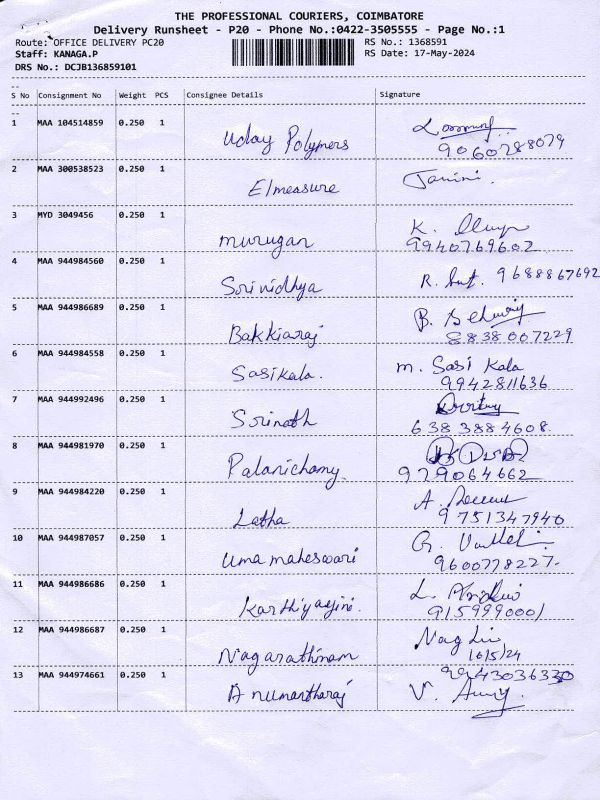 THE PROFESSIONAL COURIERS, COIMBATORE
Delivery Runsheet - P20 - Phone No.:0422-3505555 - Page No.:1
Route: OFFICE DELIVERY PC20
RS No.: 1368591
Staff: KANAGA.P
RS Date: 17-May-2024
DRS No.: DCJB136859101
S No Consignment No Weight PCS Consignee Details Signature
1 MAA 104514859 0.250 1 Uday Polymers
9060788079
2 MAA 300538523 0.250 1 Elmeasure
3 MYD 3049456 0.250 1 murugan K.
9940769602
4 MAA 944984560 0.250 1 Srividhya R. 9688867692
5 MAA 944986689 0.250 1 Bakkiaraj B.
8838007229
6 MAA 944984558 0.250 1 Sasikala. m. Sasi Kala
9942811636
7 MAA 944992496 0.250 1 Srinath
6383884608.
8 MAA 944981970 0.250 1 Palanichamy.
979064662
9 MAA 944984220 0.250 1 Latha A.
9751347940
10 MAA 944987057 0.250 1 Uma maheswari G.
9600778227.
11 MAA 944986686 0.250 1 Karthiyayini. L.
9159990001
12 MAA 944986687 0.250 1 Nagarathinam Nag
13 MAA 944974661 0.250 1 A numantharaj 9943036330
V.